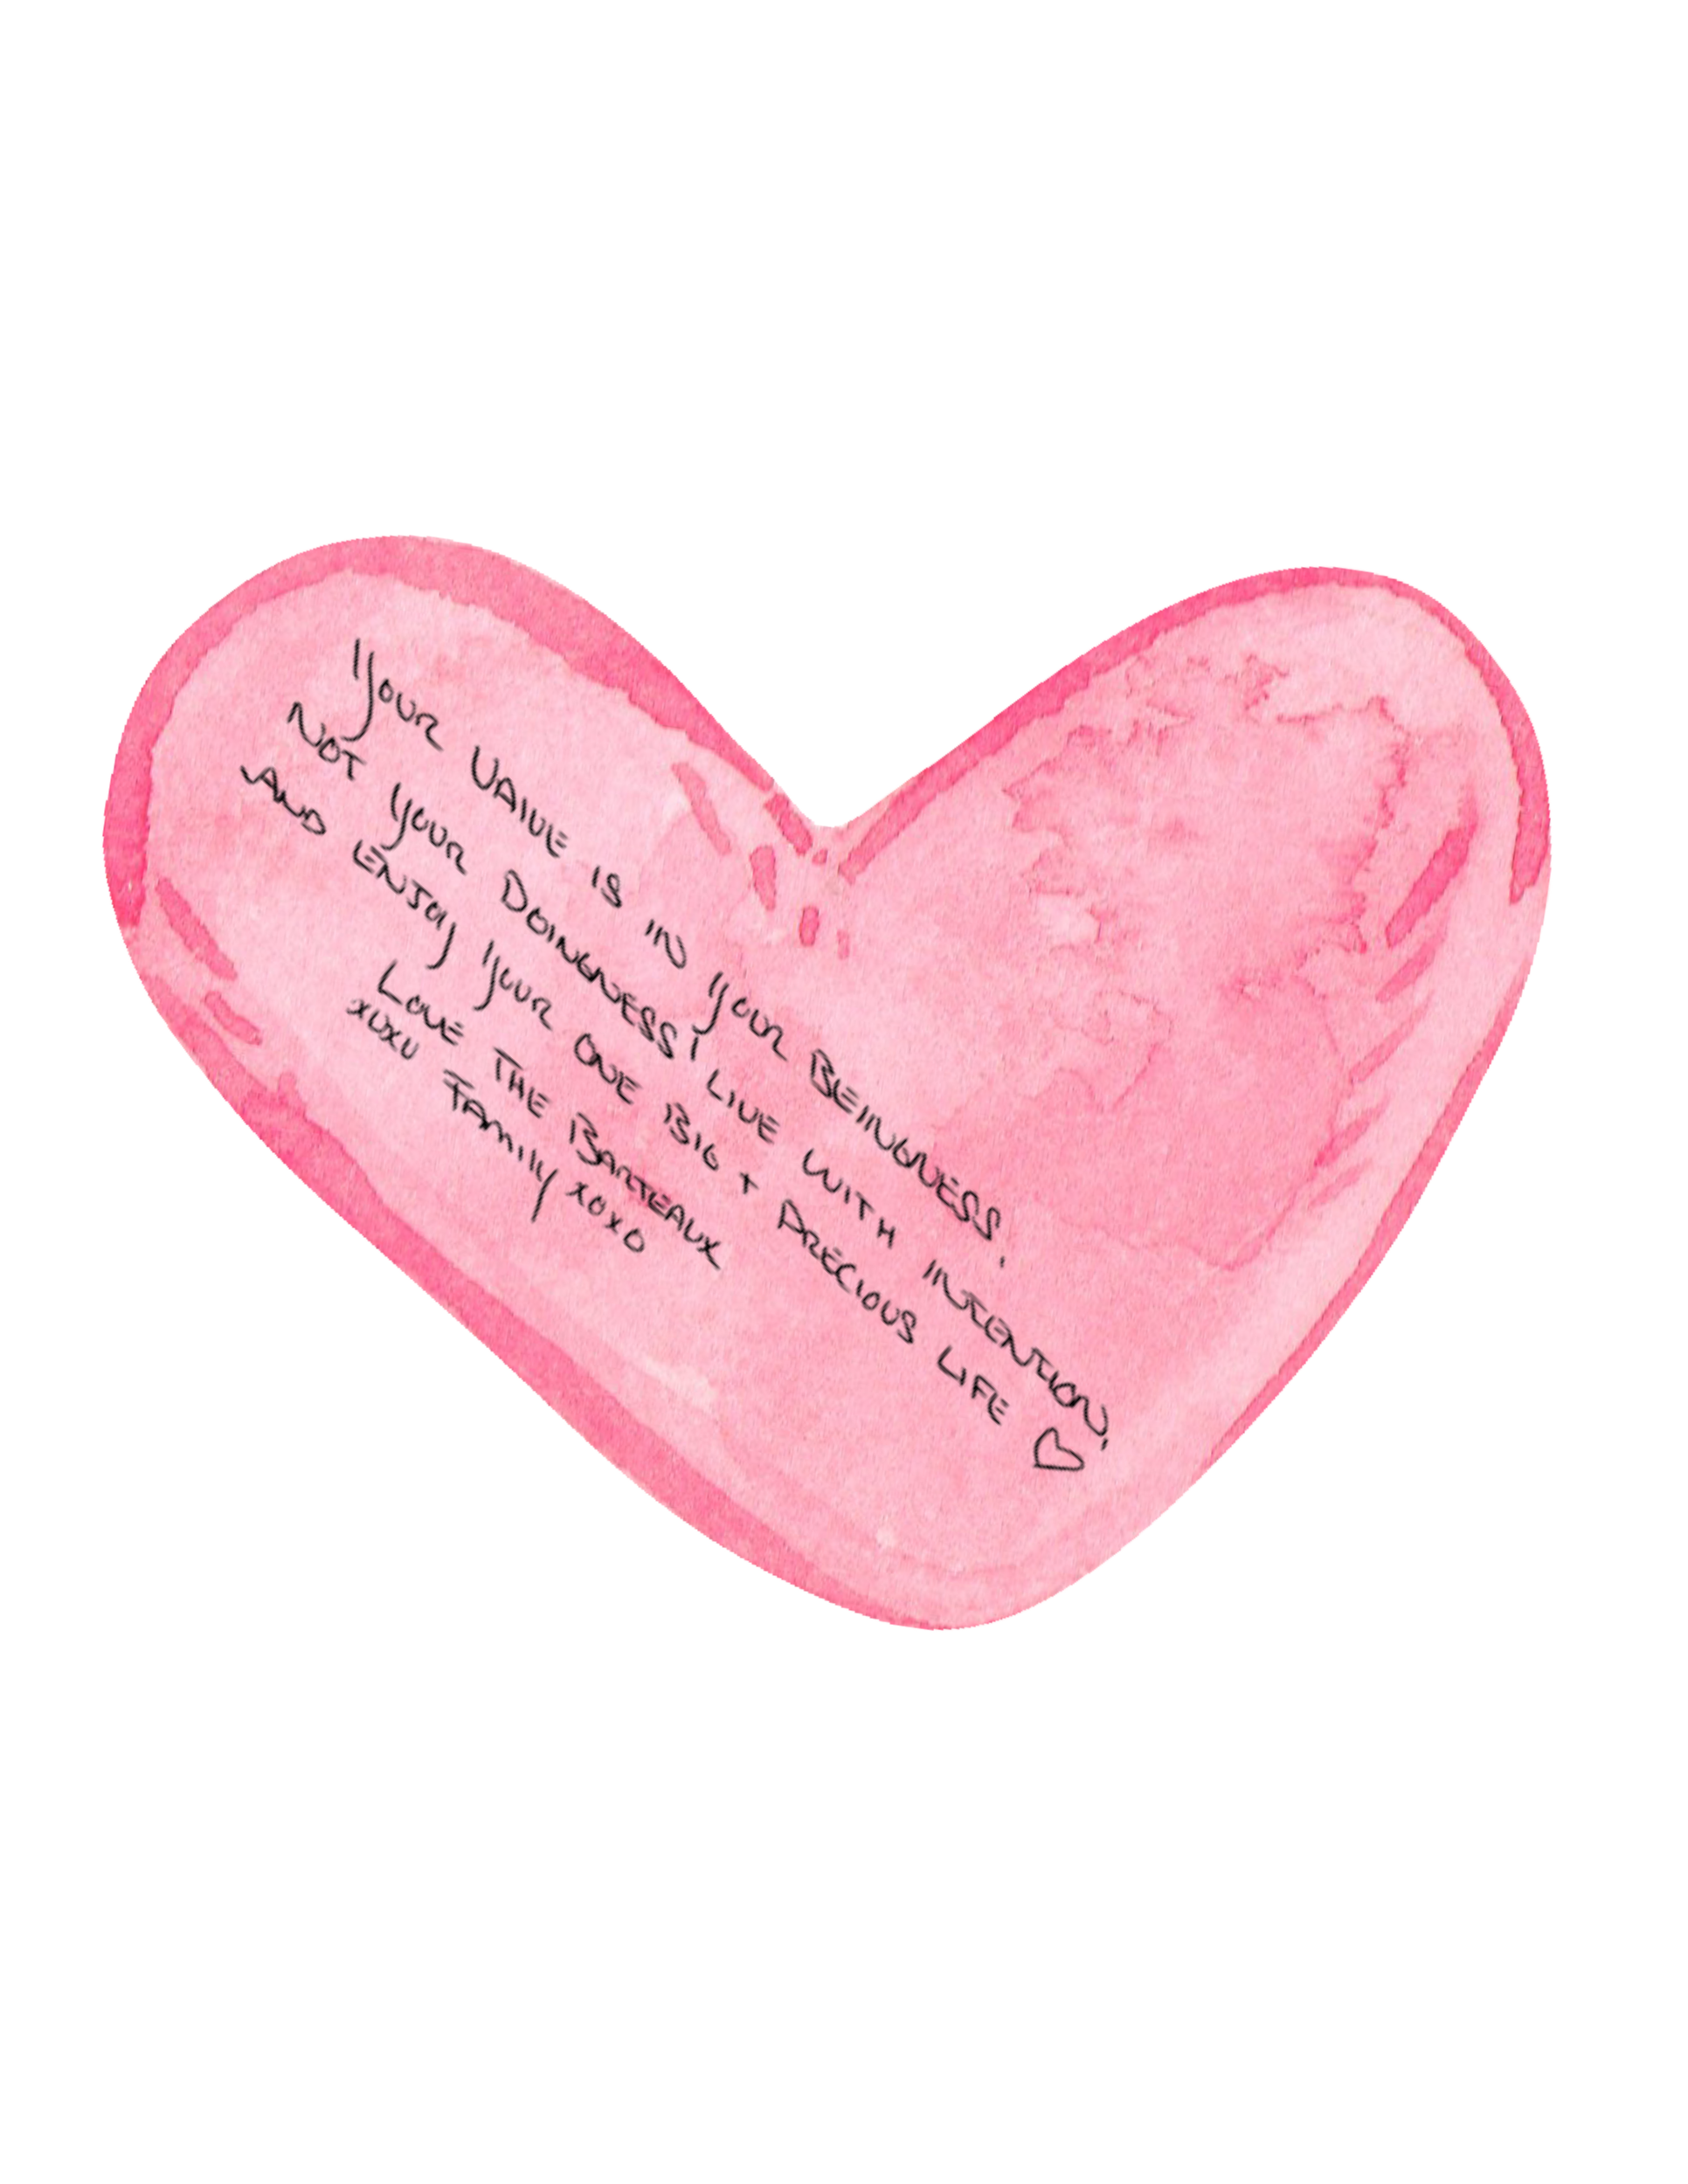 Your VALUE IS IN Your BEINGNESS,
NOT Your DOINGNESS! LIVE WITH INTENTION,
AND ENJOY Your ONE BIG + PRECIOUS LIFE ♡
LOVE THE BARTEAUX
xoxo FAMILY xoxo